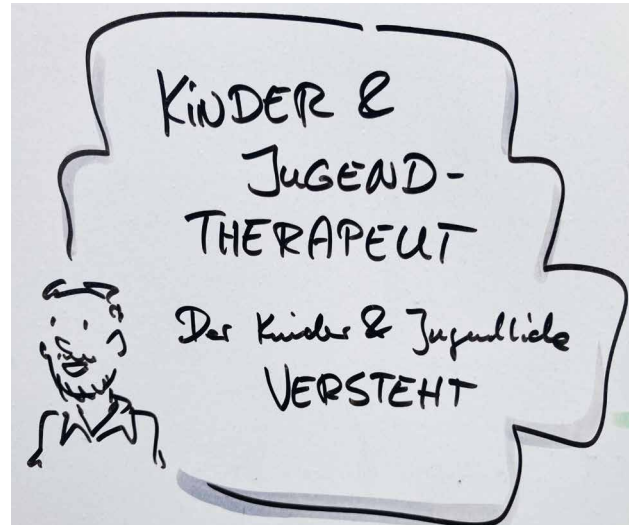 KINDER &
JUGEND-
THERAPEUT
Der Kinder & Jugendliche
VERSTEHT